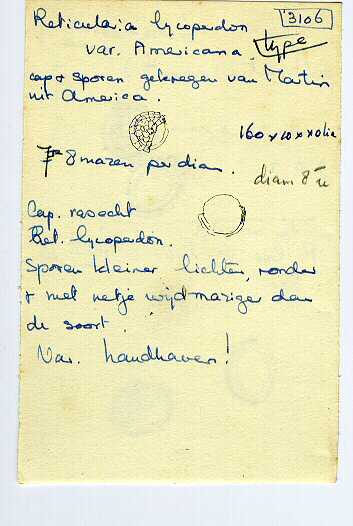 3106
Reticularia lycoperdon
var. Americana. type
cap + sporen gekregen van Martin
uit America.
160 x 10 x x olie
7 8 mazen per diam.
diam 8
Cap. rasecht
Ret. lycoperdon.
Sporen kleiner lichter, ronder
+ met netje wijdmaziger dan
de soort.
Var. handhaven!